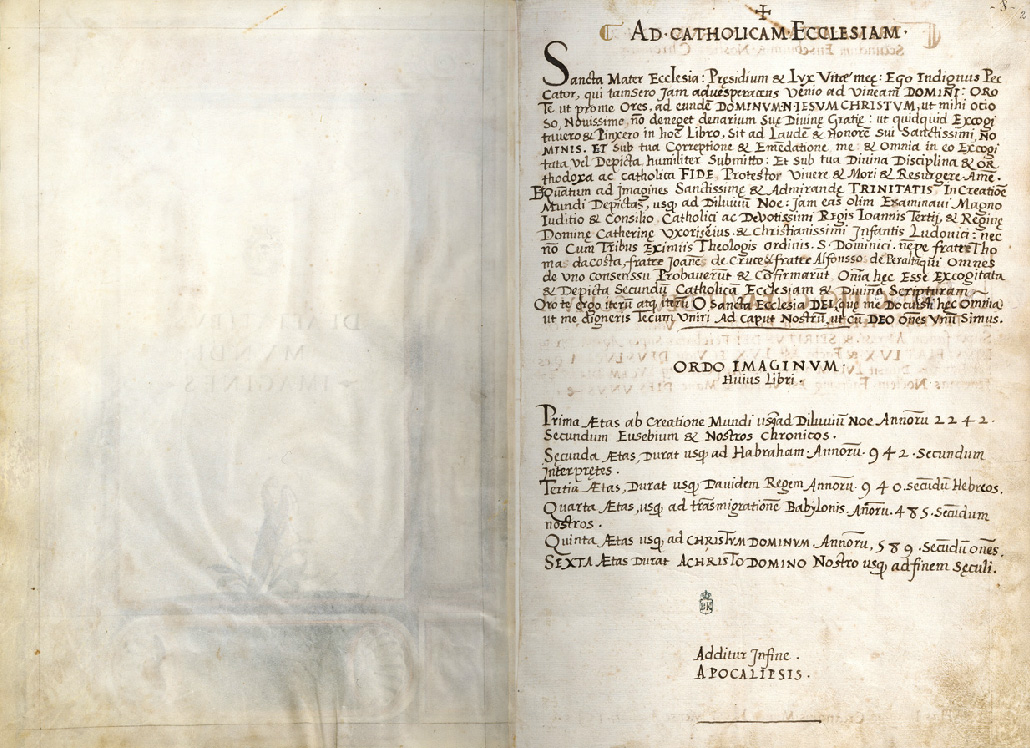 AD·CATHOLICAM·ECCLESIAM·
Sancta Mater Ecclesia: Presidium & Lux Vitæ meę: Ego Indignus Pec
Cator, qui tamSero Jam aduesperaxcus Venio ad Vineam DOMINI: ORO
Te ut prome Ores, ad eundē DOMINVM·N·IESVM CHRISTVM, ut mihi ocio
so, Nouissime, nō deneget denarium Suę Diuinę Gratię: ut quidquid Excogi
tauero & Pinxero in hoc Libro, Sit ad Laudē & honorē Sui Sanctissimi Nō
MINIS. ET Sub tua Correptione & Emēdatione me: & Omnia in eo Excogi
tata Vel Depicta humiliter Submitto: Et Sub tua Diuina Disciplina & OR
thodoxa ac Catholica FIDE, Protestor Viuere & Mori & Resurgere. Amē.
Quatum ad Imagines Sanctissimę & Admirandę TRINITATIS In Creatiōe
Mundi Depictas, usq; ad Diluuiū Noe: Jam eas olim Examinaui Magno
Iuditio & Consilio Catholici ac Deuotissimi Regis Ioannis Tertij, & Reginę
Dominę Catherinę Vxoris eius & Christianissimi Infantis Ludouici: nec
nō Cum Tribus Eximiis Theologis ordinis. S. Dominici. nēpe fratre Tho
ma dacosta, fratre Joanē de Cruce & fratre Alfonsso de Omnes
de uno Consenssu Probauerūt & Cōfirmarūt, Omia hec Esse Excogitata
& Depicta Secundū Catholicā Ecclesiam & Diuinā Scripturam
Oro te ergo iterū atq; iterū O Sancta Ecclesia DEI, que me Docuisti hec Omnia
ut me digneris Tecum Vniri Ad Caput Nostrū, ut cū DEO oēs Vnū Simus.
ORDO IMAGINVM
Huius Libri.
Prima Ætas ab Creatione Mundi usq;ad Diluuiū Noe Annorū 2242.
Secundum Eusebium & Nostros Chronicos.
Secunda Ætas, Durat usq; ad Habraham. Annorū. 942. Secundum
Interpretes.
Tertia Ætas, Durat usq; Dauidem Regem Annorū. 940. Secūdū Hebreos.
Quarta Ætas, usq; ad trāsmigrationē Babylonis. Añorū. 485. Secūdum
nostros.
Quinta Ætas usq; ad CHRISTVM DOMINVM. Annorū, 589. Secūdū oñes.
SEXTA Ætas Durat ACHRISTO DOMINO Nostro usq; ad finem Sęculi.
Additur Infine.
APOCALIPSIS.